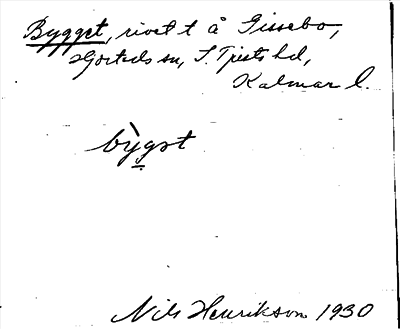 Bygget, rivet t å Gissebo,
Hjorteds sn, S. Tjusts hd,
Kalmar l.
bỳgst
Nils Henrikson 1930